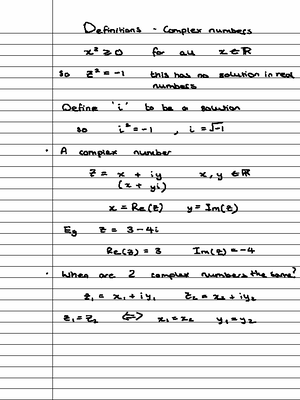 Definitions - Complex numbers
x² ≥ 0 for all x ∈ ℝ
So z² = -1 this has no solution in real
numbers
Define 'i' to be a solution
so i² = -1 , i = √-1
• A complex number
z = x + iy x, y ∈ ℝ
(x + yi)
x = Re(z) y = Im(z)
Eg z = 3 - 4i
Re(z) = 3 Im(z) = -4
• When are 2 complex numbers the same?
z₁ = x₁ + iy₁ z₂ = x₂ + iy₂
z₁ = z₂ ⇔ x₁ = x₂ y₁ = y₂